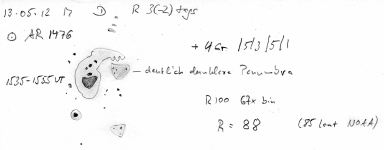 13.05.12 17 D R 3(-2) tags
⊙ AR 1476
+ 4 Gr /5/3/5/1
deutlich dunklere Penumbra
1535-1555 UT
R100 67x bin
R = 88 (85 laut NOAA)